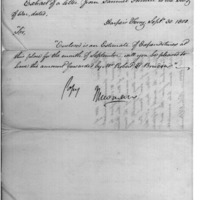 Extract of a letter from Samuel to the Secy
of War, dated,
Harpers Ferry Sept. 30 1800
Sir,
"Enclosed is an Estimate of Expenditures at
this place for the month of September will you be pleased to
have the amount forwarded by Mr Robert G.
Copy